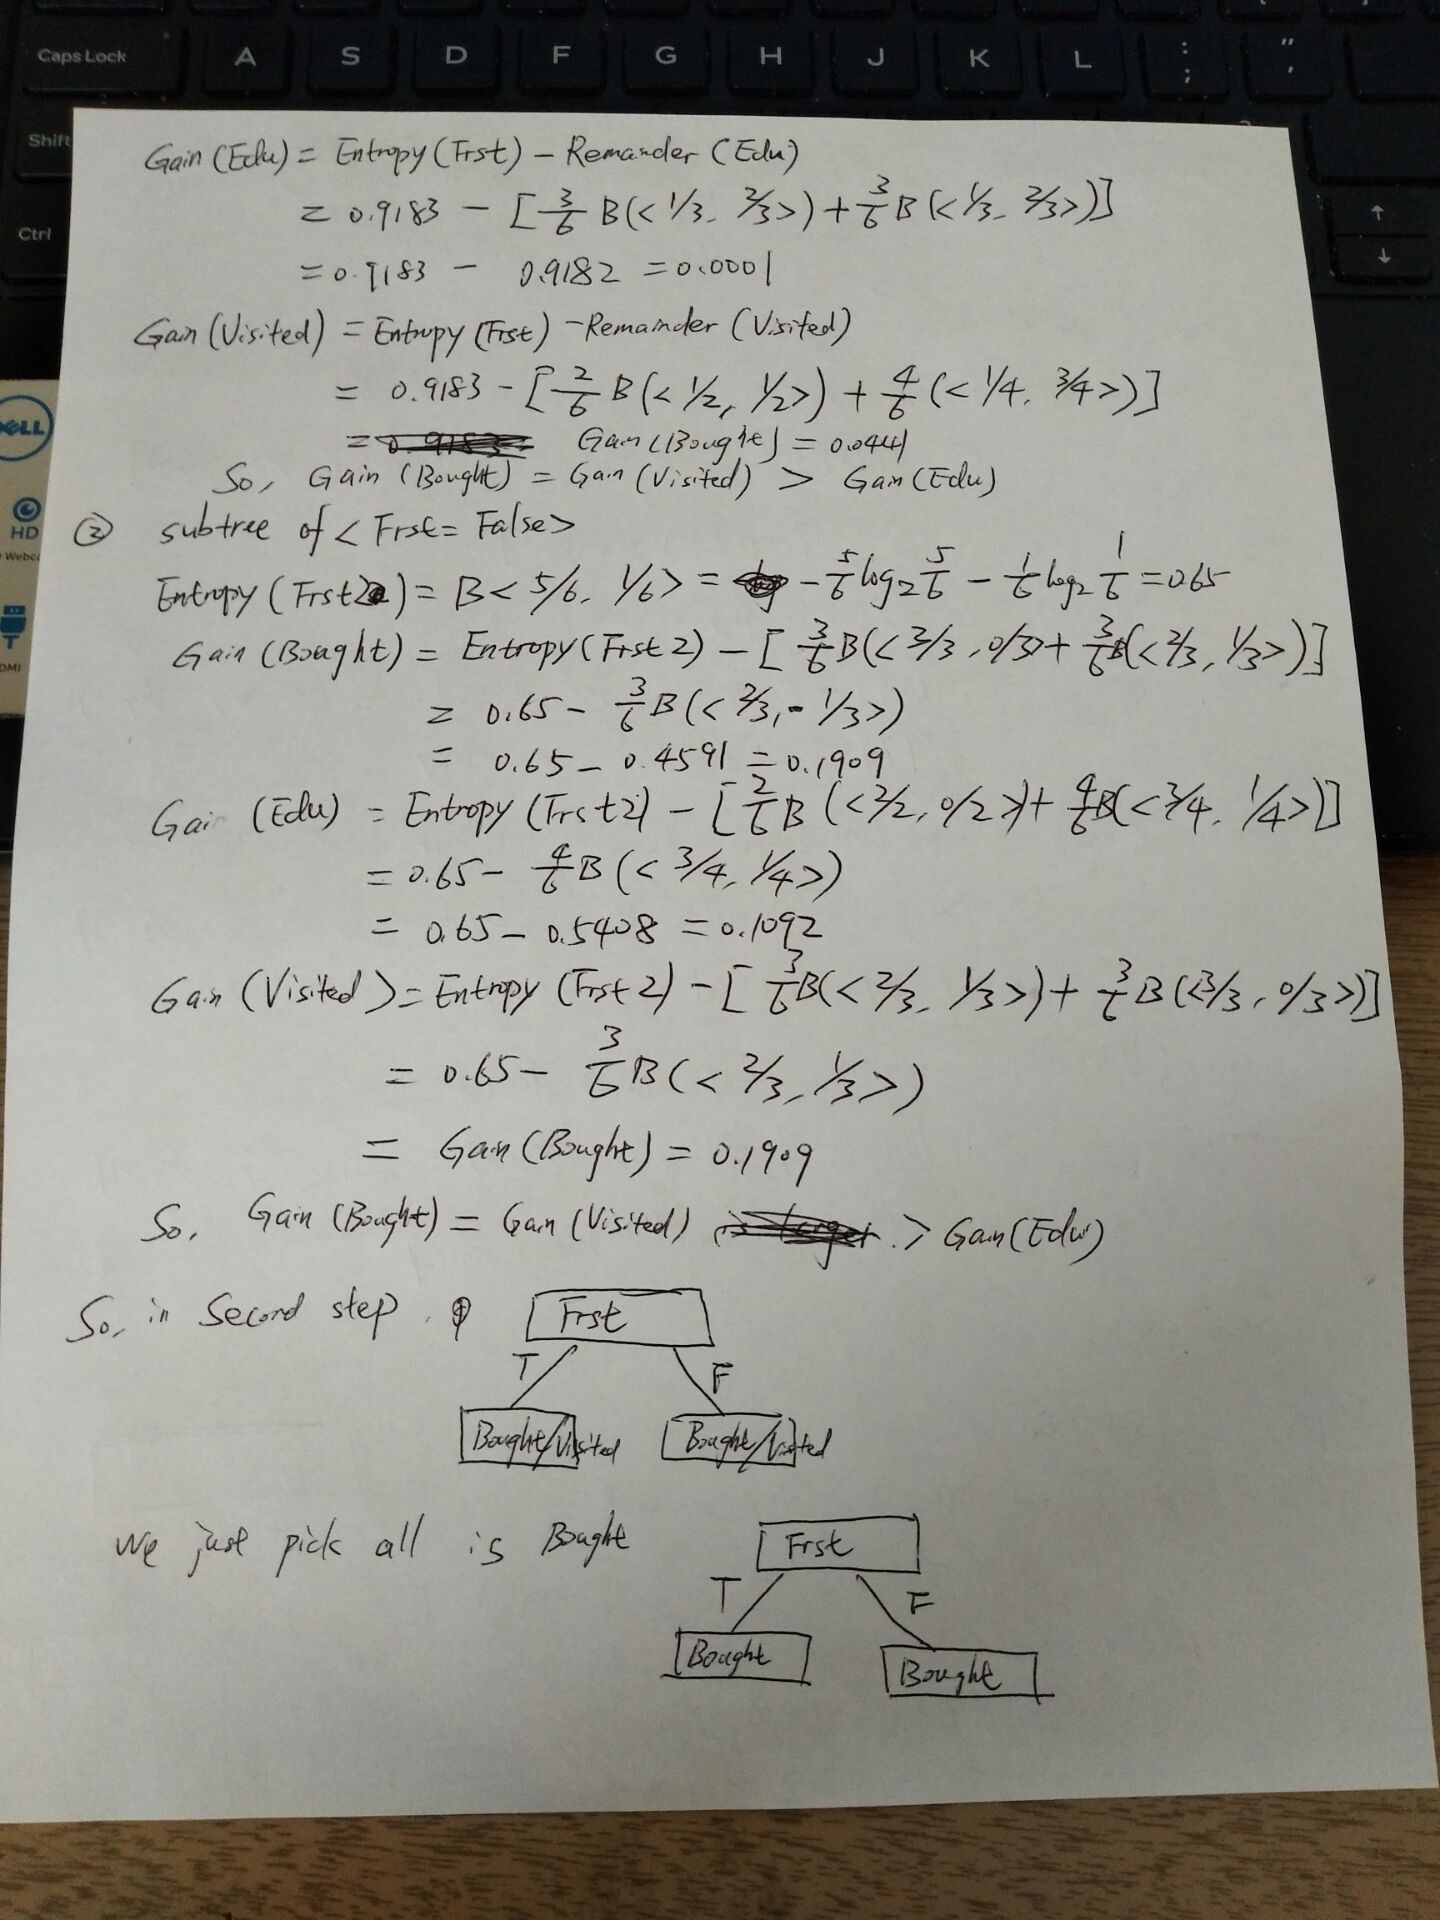 Caps Lock A S D F G H J K L : ; " '
Shift
Ctrl
Gain (Edu) = Entropy (Frst) - Remainder (Edu)
= 0.9183 - [3/6 B(<1/3, 2/3>) + 3/6 B(<1/3, 2/3>)]
= 0.9183 - 0.9182 = 0.0001
Gain (Visited) = Entropy (Frst) - Remainder (Visited)
= 0.9183 - [2/6 B(<1/2, 1/2>) + 4/6 (<1/4, 3/4>)]
= Gain (Bought) = 0.0441
So, Gain (Bought) = Gain (Visited) > Gain (Edu)
② subtree of <Frst = False>
Entropy (Frst2) = B<5/6, 1/6> = -5/6 log2 5/6 - 1/6 log2 1/6 = 0.65
Gain (Bought) = Entropy (Frst2) - [3/6 B(<3/3, 0/3>) + 3/6 B(<2/3, 1/3>)]
= 0.65 - 3/6 B(<2/3, 1/3>)
= 0.65 - 0.4591 = 0.1909
Gain (Edu) = Entropy (Frst2) - [2/6 B(<2/2, 0/2>) + 4/6 B(<3/4, 1/4>)]
= 0.65 - 4/6 B(<3/4, 1/4>)
= 0.65 - 0.5408 = 0.1092
Gain (Visited) = Entropy (Frst2) - [3/6 B(<2/3, 1/3>) + 3/6 B(<3/3, 0/3>)]
= 0.65 - 3/6 B(<2/3, 1/3>)
= Gain (Bought) = 0.1909
So, Gain (Bought) = Gain (Visited) > Gain (Edu)
So, in Second step, Frst
T F
Bought/Visited Bought/Visited
We just pick all is Bought Frst
T F
Bought Bought
DELL
HD
Webc
DMI